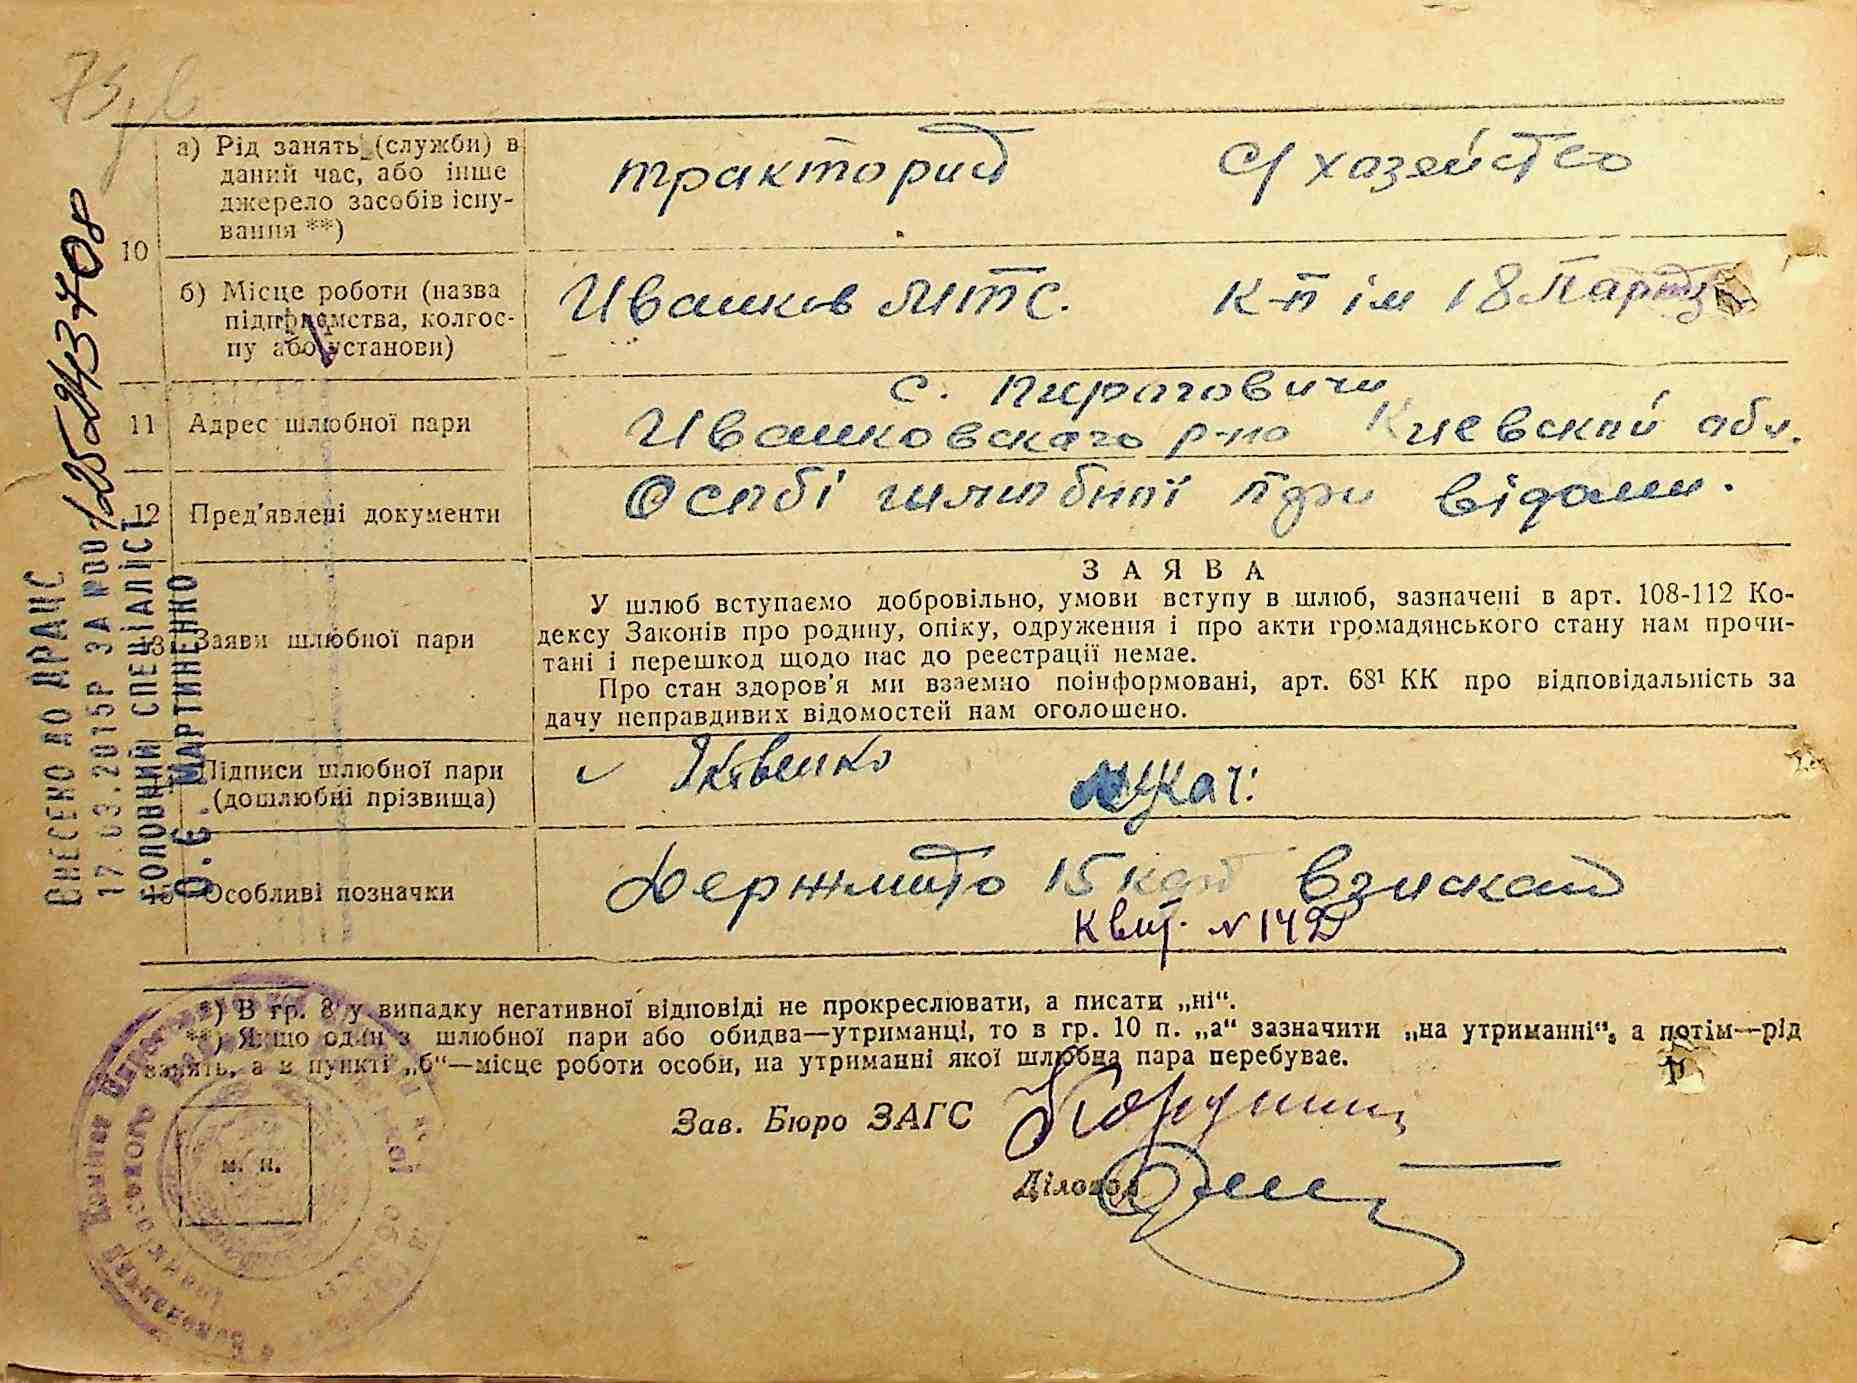 10
а) Рід занять (служби) в
даний час, або інше
джерело засобів існу-
вання **)
тракторист
С/ хазейство
б) Місце роботи (назва
підприємства, колгос-
пу або установи)
Иванков МТС.
К-п ім 18 Парт
11
Адрес шлюбної пари
с. Пироговичи
Иванковского р-но Киевской обл.
12
Пред'явлені документи
Особі шлюбної при відомы.
13
Заяви шлюбної пари
ЗАЯВА
У шлюб вступаємо добровільно, умови вступу в шлюб, зазначені в арт. 108-112 Ко-
дексу Законів про родину, опіку, одруження і про акти громадянського стану нам прочи-
тані і перешкод щодо нас до реестрації немає.
Про стан здоров'я ми взаємно поінформовані, арт. 68¹ КК про відповідальність за
дачу неправдивих відомостей нам оголошено.
Підписи шлюбної пари
(дошлюбні прізвища)
Яковенко
15
Особливі позначки
Держмито 15 крб взискат
Квит. N 142
*) В гр. 8 у випадку негативної відповіді не прокреслювати, а писати „ні“.
**) Якщо один з шлюбної пари або обидва—утриманці, то в гр. 10 п. „а“ зазначити „на утриманні“, а потім—рід
занять, а в пункті „б“—місце роботи особи, на утриманні якої шлюбна пара перебуває.
Зав. Бюро ЗАГС
Діловод
м. п.
ВНЕСЕНО ДО ДРАЦС
17.03.2015Р ЗА №00125243708
ГОЛОВНИЙ СПЕЦІАЛІСТ
О.Є. МАРТИНЕНКО